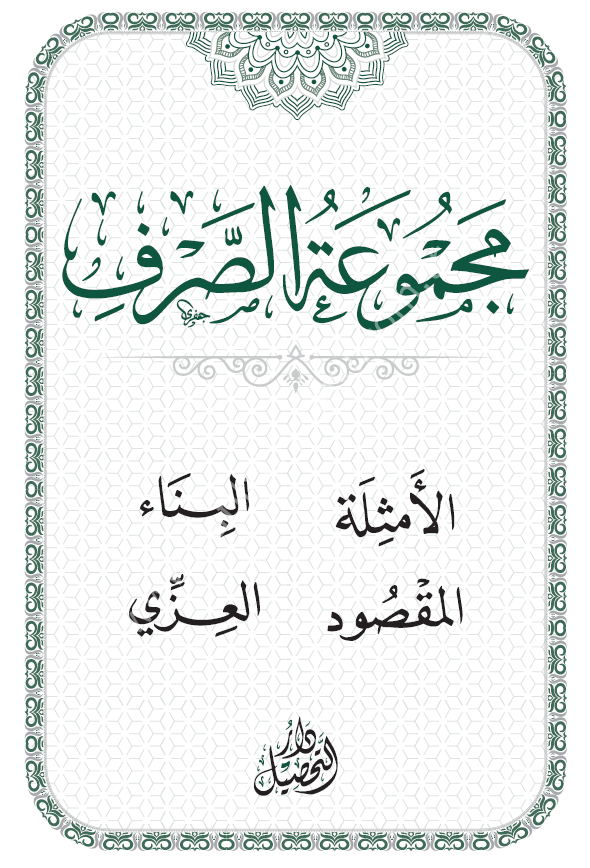 مَجْمُوعَةُ الصَّرْفِ
الأَمثِلَة البِنَاء
المَقْصُود العِزِّي
دَارُ التَّحْصِيل